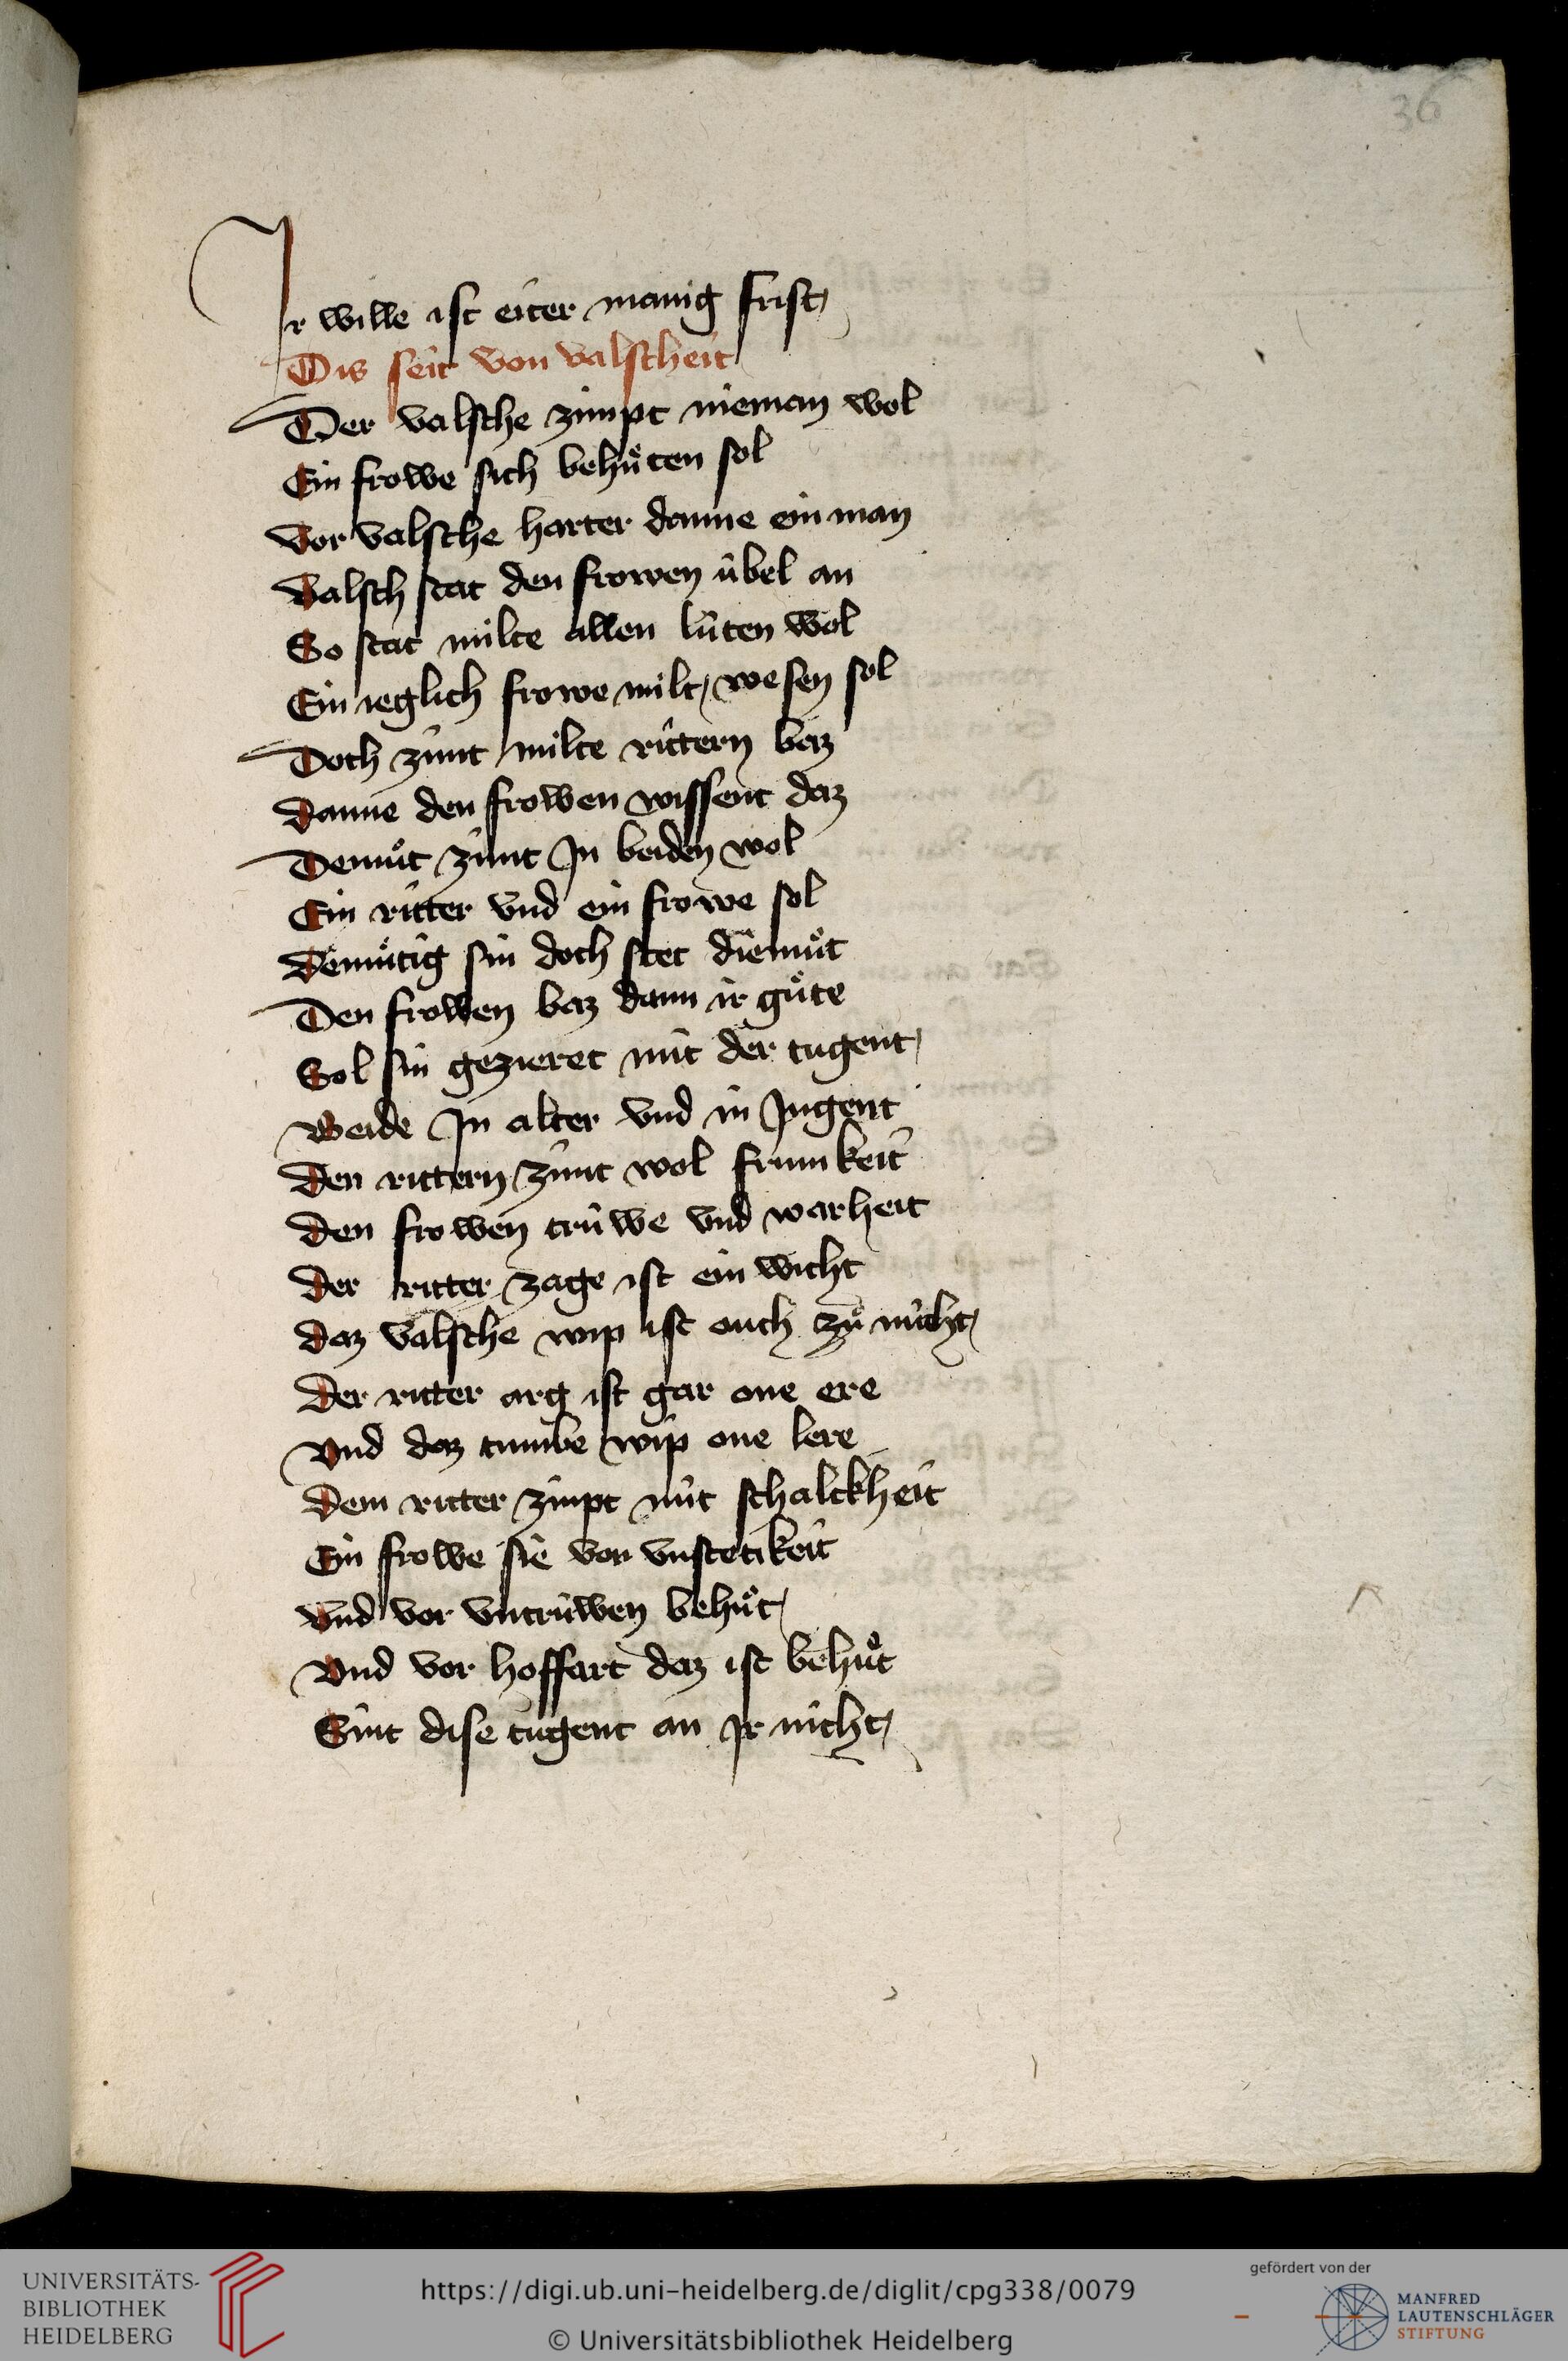 36
Ir wille ist eiter manig frist
Dis seit von valscheit
Der valsche zimpt nieman wol
Ein frowe sich behuͤten sol
Vor valsche harter danne ein man
Valsch stat den frowen úbel an
So stat milte allen lúten wol
Ein ieglich frowe milt wesen sol
Doch zimt milte rittern baz
Danne den frowen wissent daz
Demuͤt zimt In beiden wol
Ein ritter vnd ein frowe sol
Demuͤtig sin doch stet diemuͤt
Den frowen baz dann ir guͤte
Sol sin gezieret mit der tugent
Beide In alter vnd in Jugent
Den rittern zimt wol frumkeit
Den frowen trúwe vnd warheit
Der ritter zage ist ein wicht
Daz valsche wip ist ouch zuͦ nicht
Der ritter arg ist gar one ere
Vnd daz tumbe wip one lere
Dem ritter zimpt nit schalckheit
Ein frowe sie von vnstetikeit
Vnd vor vntrúwen behuͤt
Vnd vor hoffart daz ist behuͤt
Sint dise tugent an Ir nicht
UNIVERSITÄTS-
BIBLIOTHEK
HEIDELBERG
https://digi.ub.uni-heidelberg.de/diglit/cpg338/0079
© Universitätsbibliothek Heidelberg
gefördert von der
MANFRED
LAUTENSCHLÄGER
STIFTUNG